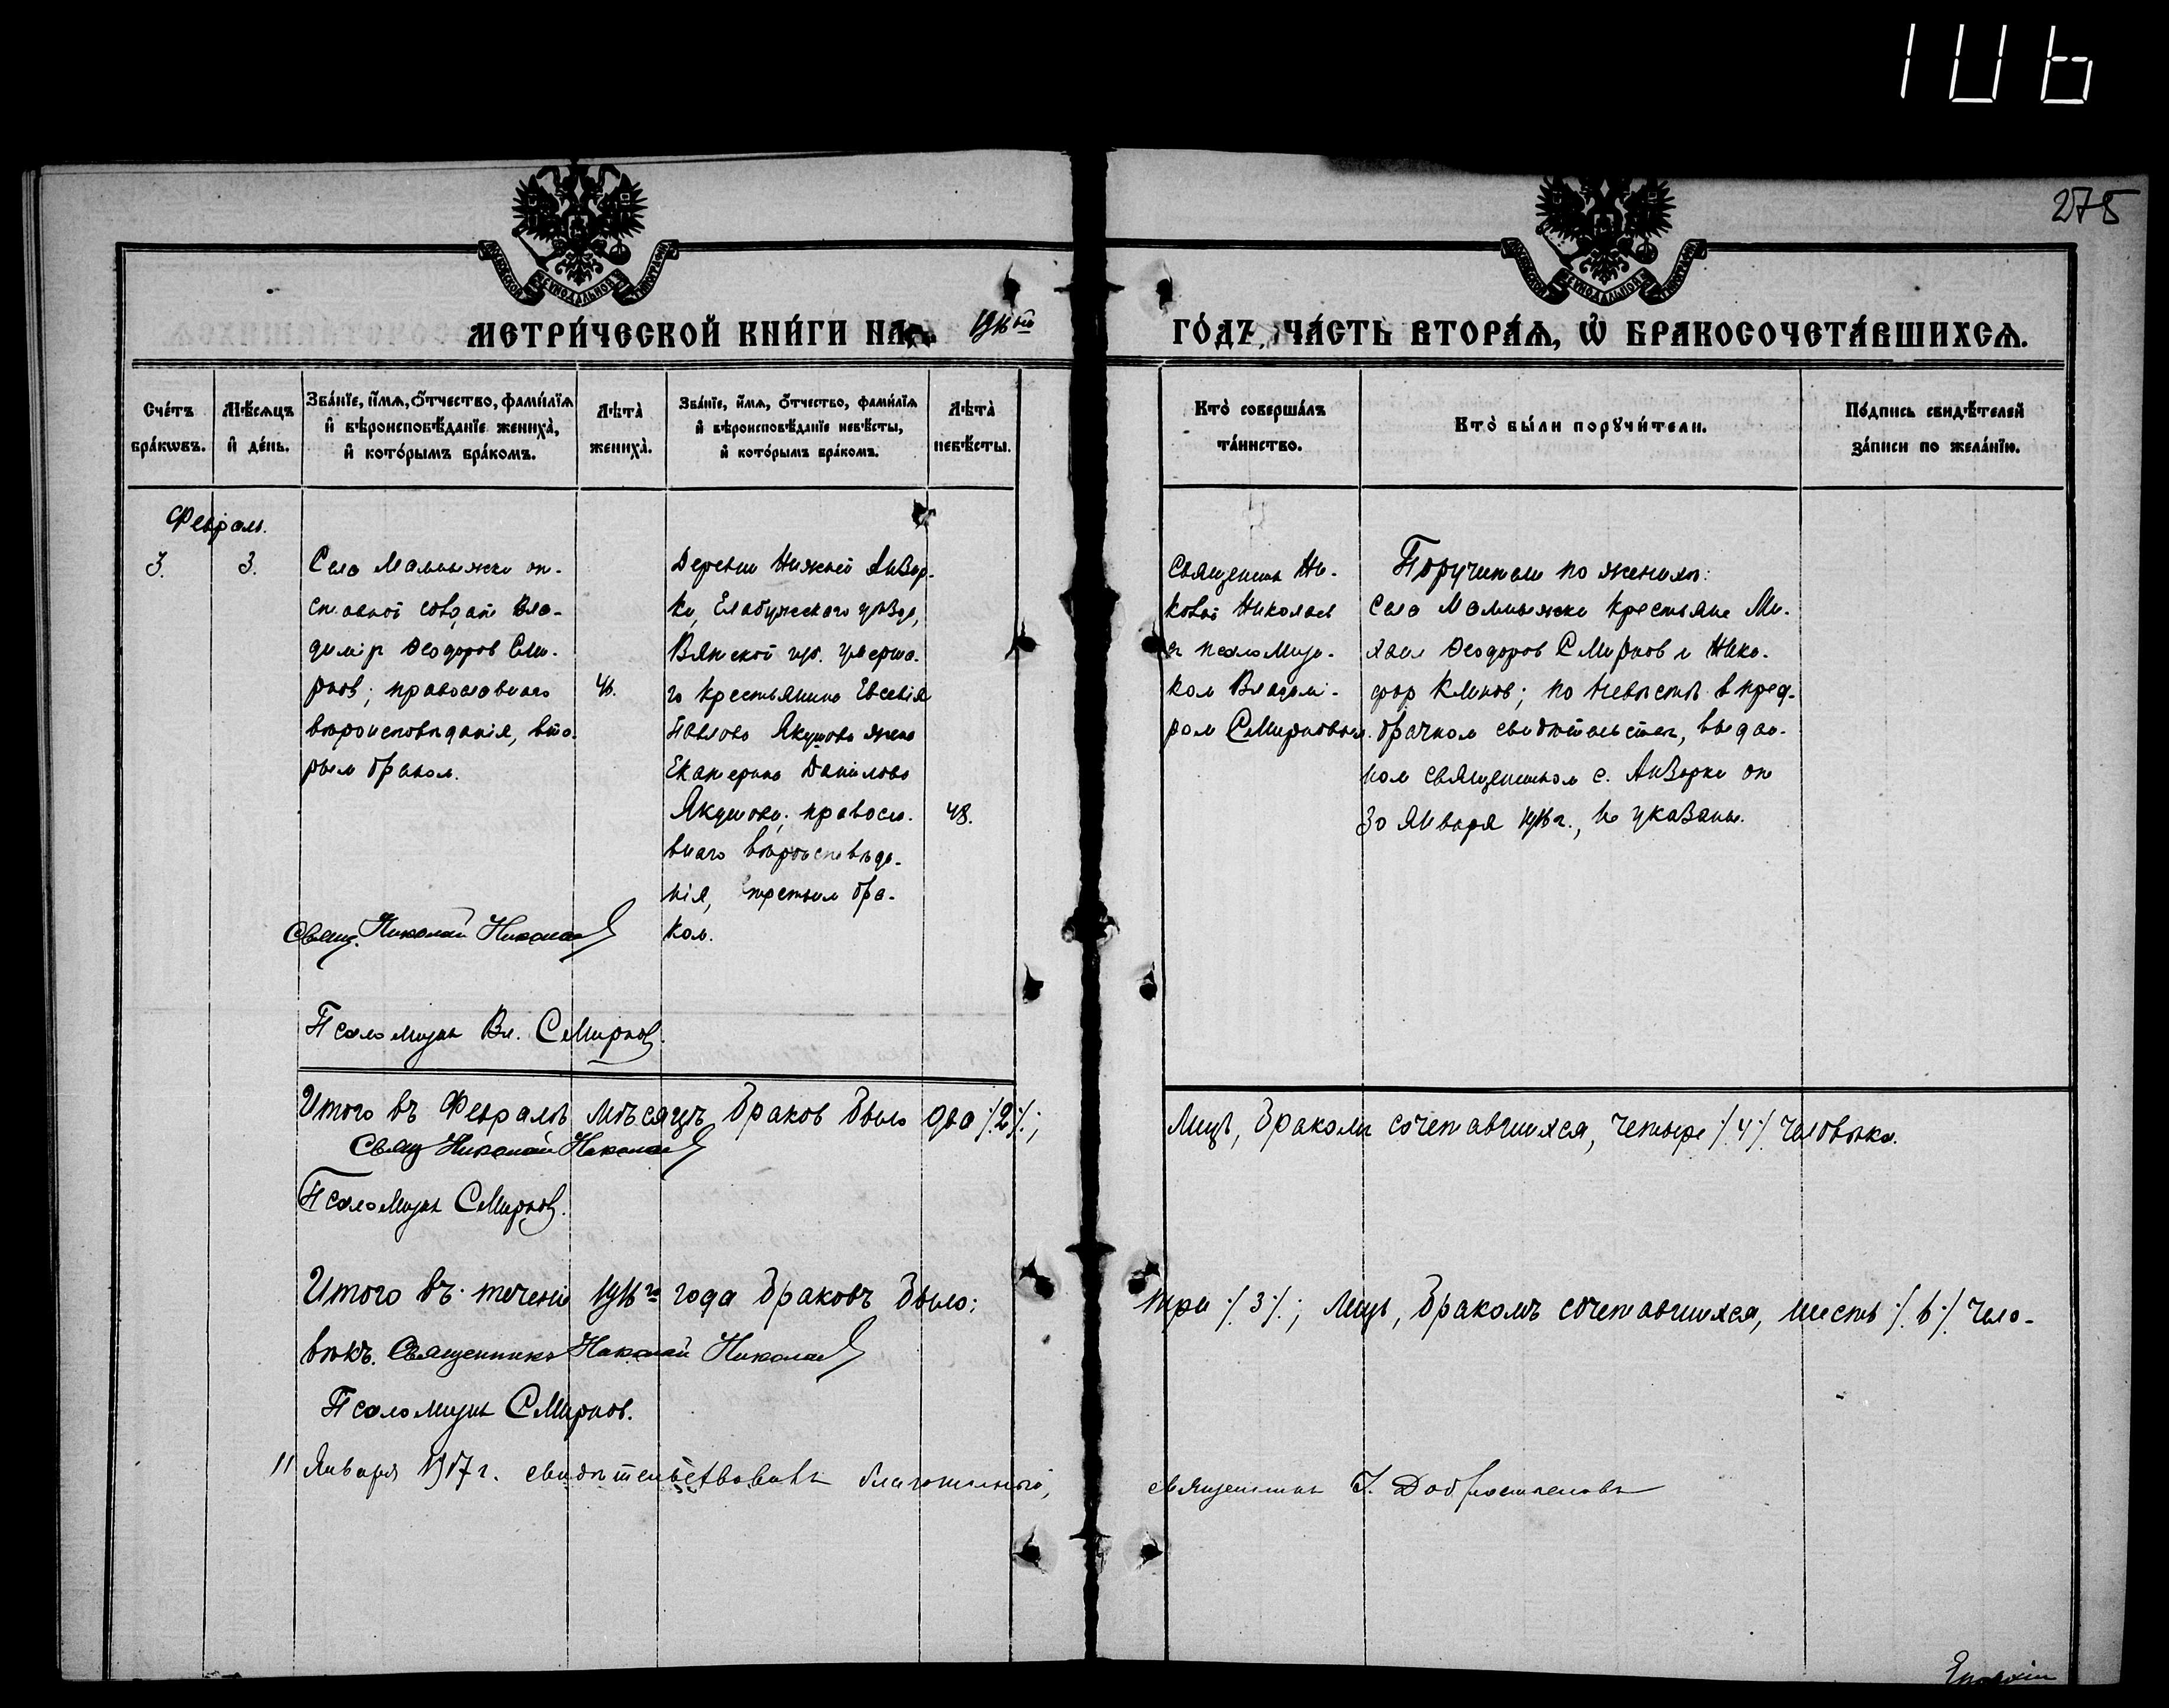 106
275
МЕТРИ́ЧЕСКОЙ КНИ́ГИ НА 1916ый
ГО́ДЪ, ЧА́СТЬ ВТОРА́Я, Ѽ БРАКОСОЧЕТА́ВШИХСЯ.
Сче́тъ бра́кѡвъ.
Мѣ́сяцъ и҆ де́нь.
Зва́нїе, и҆́мя, ѻ҆́тчество, фами́лїя и҆ вѣроисповѣ́данїе жениха̀, и҆ кото́рымъ бра́комъ.
Лѣта̀ жениха̀.
Зва́нїе, и҆́мя, ѻ҆́тчество, фами́лїя и҆ вѣроисповѣ́данїе невѣ́сты, и҆ кото́рымъ бра́комъ.
Лѣта̀ невѣ́сты.
Кто̀ соверша́лъ та́инство.
Кто̀ бы́ли порꙋчи́тели.
По́дпись свидѣ́телей за́писи по жела́нїю.
Февраль.
3.
3.
Села Малмыжки от-
ставной солдат Вла-
димір Ѳеодоров Сми-
рнов; православнаго
вѣроисповѣданія, вто-
рым браком.
46.
Деревни Нижней Анзир-
ки, Елабужскаго уѣзда,
Вятской губ. умерша-
го крестьянина Евсевія
Павлова Якушова жена
Екатерина Данилова
Якушова; правосл.
внаго вѣроисповѣда-
нія, третьим бра-
ком.
48.
Священник Ни-
колай Николаев
с псаломщи-
ком Владимі-
ром Смирновым.
Поручители по женихѣ:
Села Малмыжки крестьяне Ми-
хаил Ѳеодоров Смирнов и Ники-
фор Климов; по невѣстѣ в пред-
брачном свидѣтельствѣ, выдан-
ном священником с. Анзирки от
30 Января 1916 г., не указаны.
Свящ. Николай Николаев
Псаломщик Вл. Смирнов.
Итого въ Февралѣ мѣсяцѣ браков было два /2/;
Лицъ, браком сочетавшихся, четыре /4/ человѣка.
Свящ Николай Николаев
Псаломщик Смирнов.
Итого въ теченіе 1916го года браковъ было:
три /3/; лицъ, бракомъ сочетавшихся, шесть /6/ чело-
вѣкъ. Священникъ Николай Николаев
Псаломщик Смирнов.
11 Января 1917 г. свидѣтельствовалъ благочинный,
священникъ І.